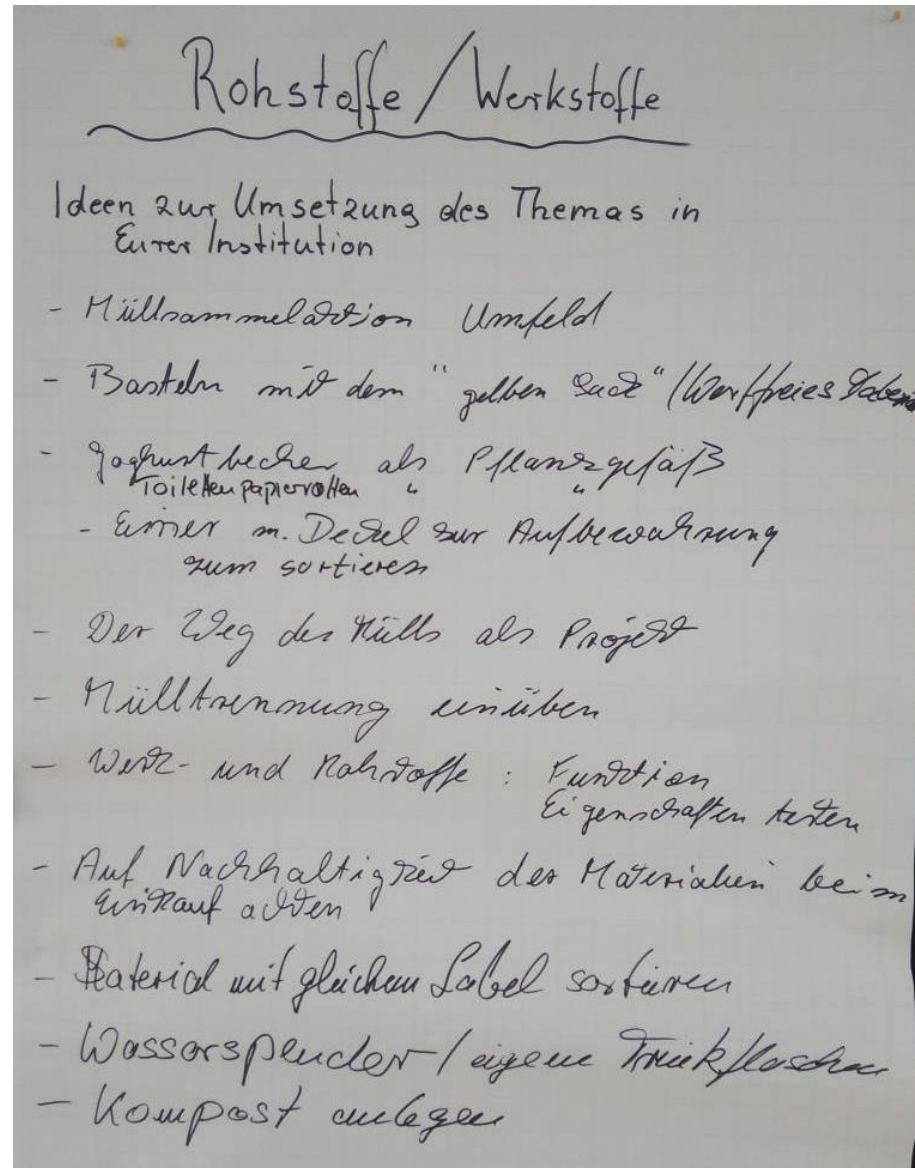 Rohstoffe / Werkstoffe
Ideen zur Umsetzung des Themas in
Eurer Institution
- Müllsammelaktion Umfeld
- Basteln mit dem "gelben Sack" / (Wertfreies
- Joghurtbecher als Pflanzgefäß
Toilettenpapierrollen " "
- Eimer m. Deckel zur Aufbewahrung
zum sortieren
- Der Weg des Mülls als Projekt
- Mülltrennung einüben
- Werk- und Rohstoffe : Funktion
Eigenschaften testen
- Auf Nachhaltigkeit der Materialien beim
Einkauf achten
- Material mit gleichem Label sortieren
- Wasserspender / eigene Trinkflaschen
- Kompost anlegen